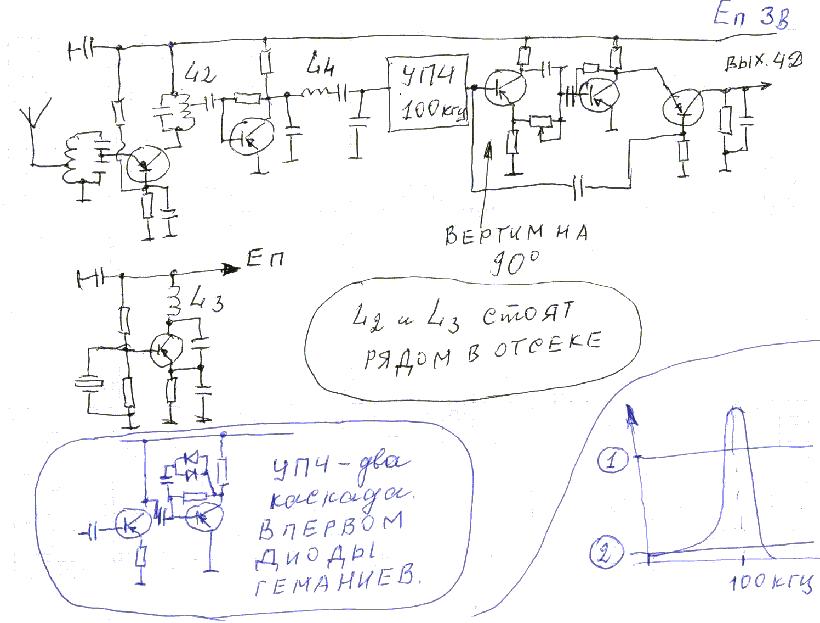 Еп 3В
L2
L4
УПЧ
100 кгц
ВЫХ. ЧД
ВЕРТИМ НА
90°
Еп
L3
L2 и L3 СТОЯТ
РЯДОМ В ОТСЕКЕ
УПЧ - два
каскада.
В ПЕРВОМ
ДИОДЫ
ГЕМАНИЕВ.
1
2
100 кгц